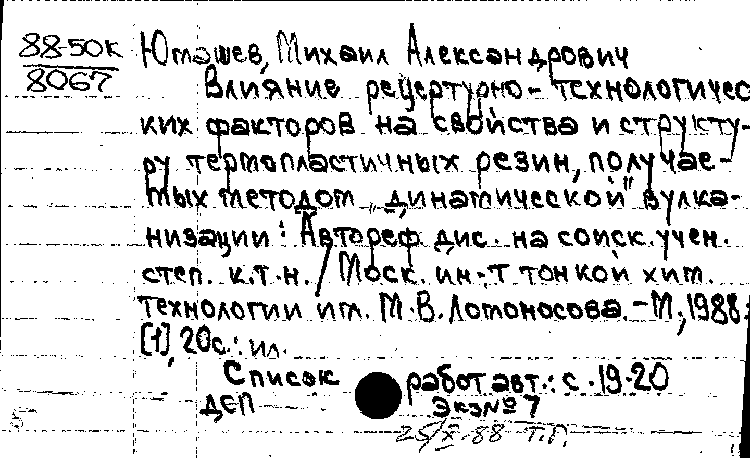 88-50к
8067
Юташев, Михаил Александрович
Влияние рецертурно-технологичес
ких факторов на свойства и структу-
ру термопластичных резин, получае-
мых методом „динамической" вулка-
низации: Автореф. дис. на соиск. учен.
степ. к.т.н. / Моск. ин-т тонкой хим.
технологии им. М.В. Ломоносова. - М., 1988.
[1], 20с.: ил.
Список работ авт.: с. 19-20
ДСП Экз № 7
5 25/X-88 Т.П.